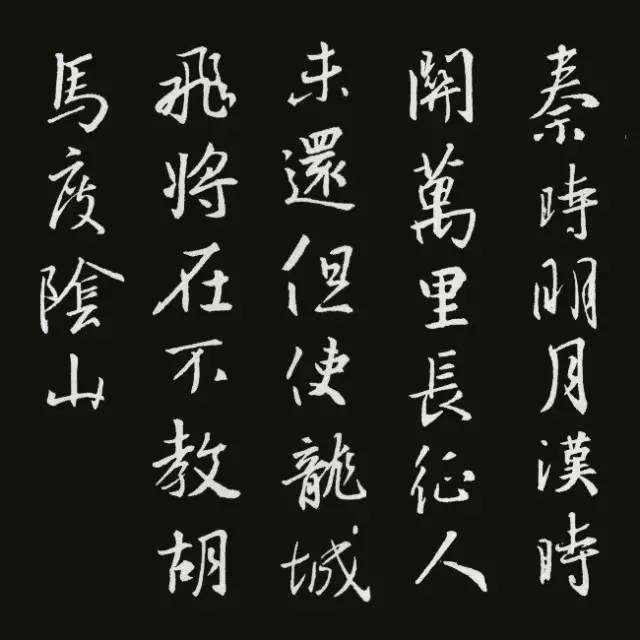 秦時明月漢時
關萬里長征人
未還但使龍城
飛將在不教胡
馬度陰山